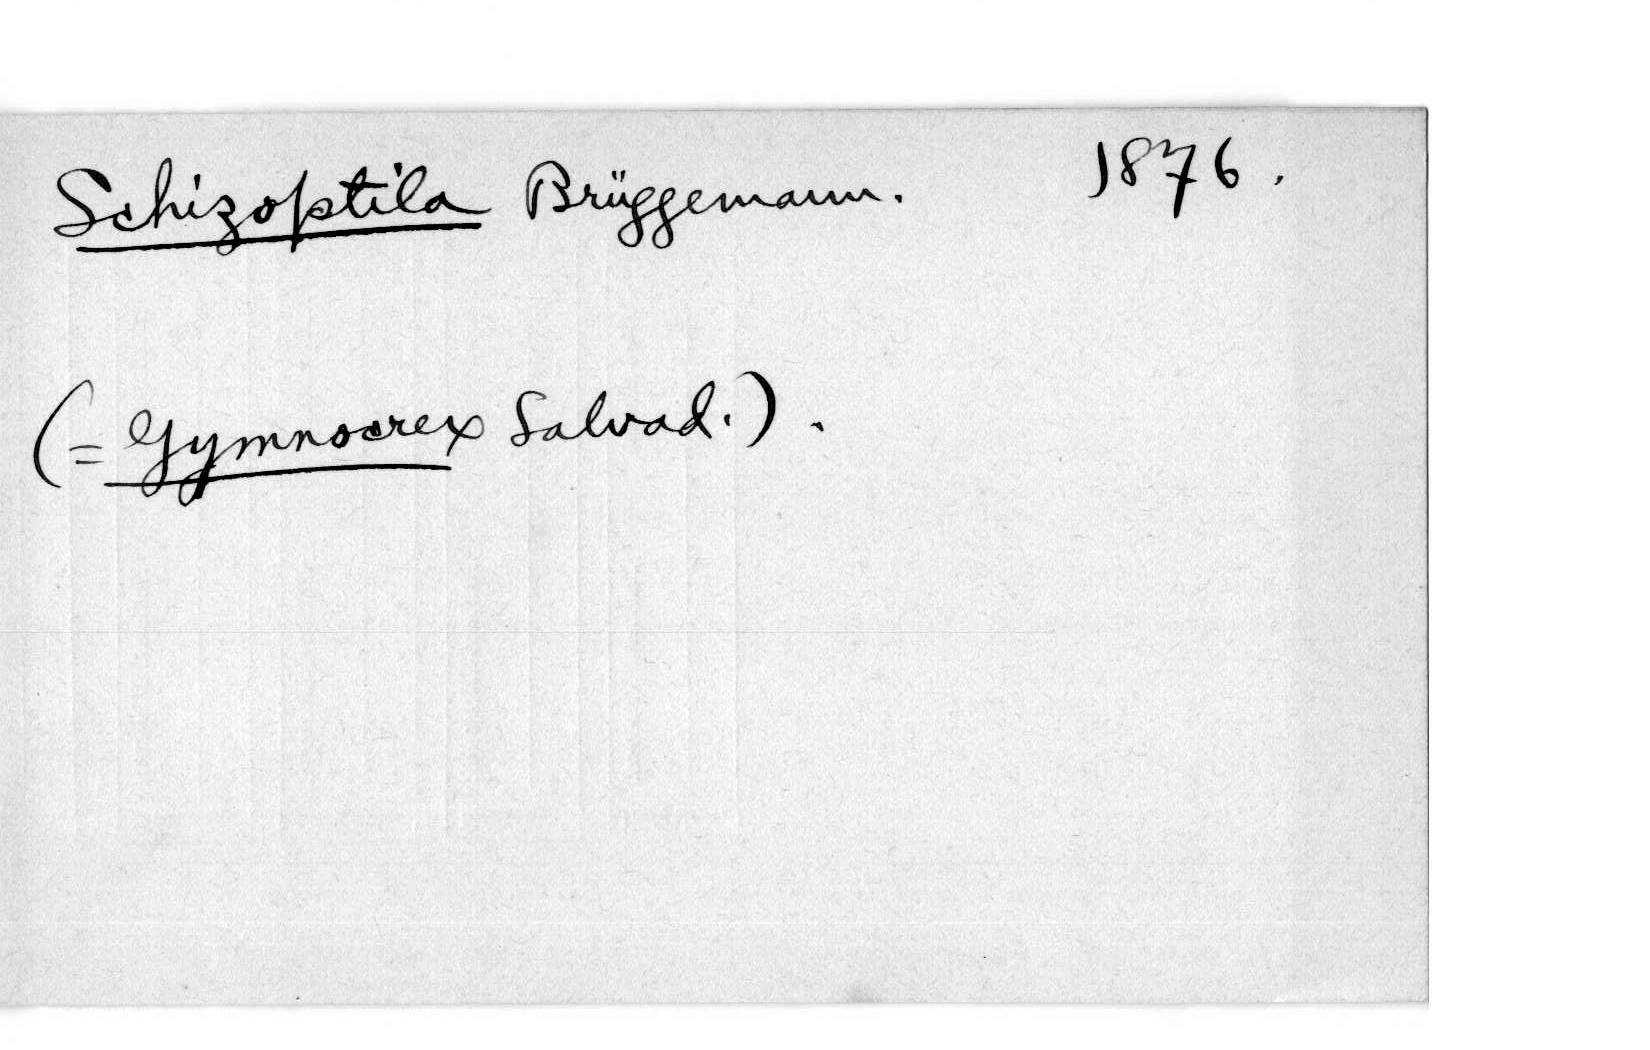 Schizoptila Brüggemann. 1876.
(= Gymnocrex Salvad.).